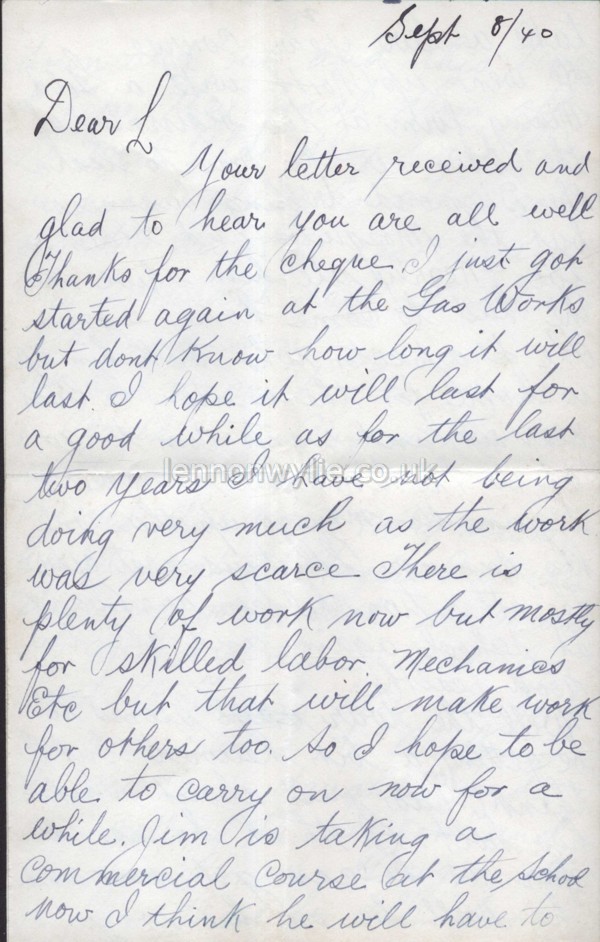 Sept 8/40
Dear L
Your letter received and
glad to hear you are all well
Thanks for the cheque I just got
started again at the Gas Works
but dont know how long it will
last. I hope it will last for
a good while as for the last
lennonwylie.co.uk
two years I have not being
doing very much as the work
was very scarce There is
plenty of work now but mostly
for skilled labor Mechanics
Etc but that will make work
for others too. So I hope to be
able to carry on now for a
while. Jim is taking a
commercial course at the School
now I think he will have to